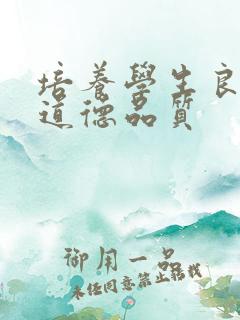 培養學生良
道德品質
御用一品
未任同意禁止轉載